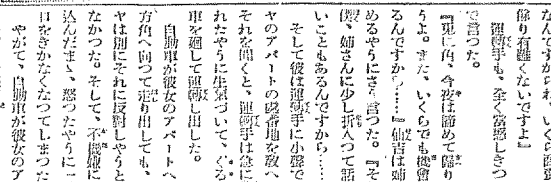 餘り有難くないですよ』
運轉手も、全く當惑しきつ
て言つた。
『兎に角、今夜は諦めて歸り
うよ。また、いくらでも機會
るんですから……』仙吉は姉
めるやうにさう言つた。『そ
僕、姉さんに少し折入つて話
いこともあるんですから……
そして彼は運轉手に小聲で
ヤのアパートの處番地を敎へ
それを聞くと、運轉手は急に
れたやうに生氣づいて、ぐる
車を廻して運轉し出した。
自動車が彼女のアパートへ
方角へ向つて走り出しても、
ヤは別にそれに反對しやうと
なかつた。そして、不機嫌に
込んだまゝ、怒つたやうに一
口をきかなくなつてしまつた
やがて、自動車が彼女のア